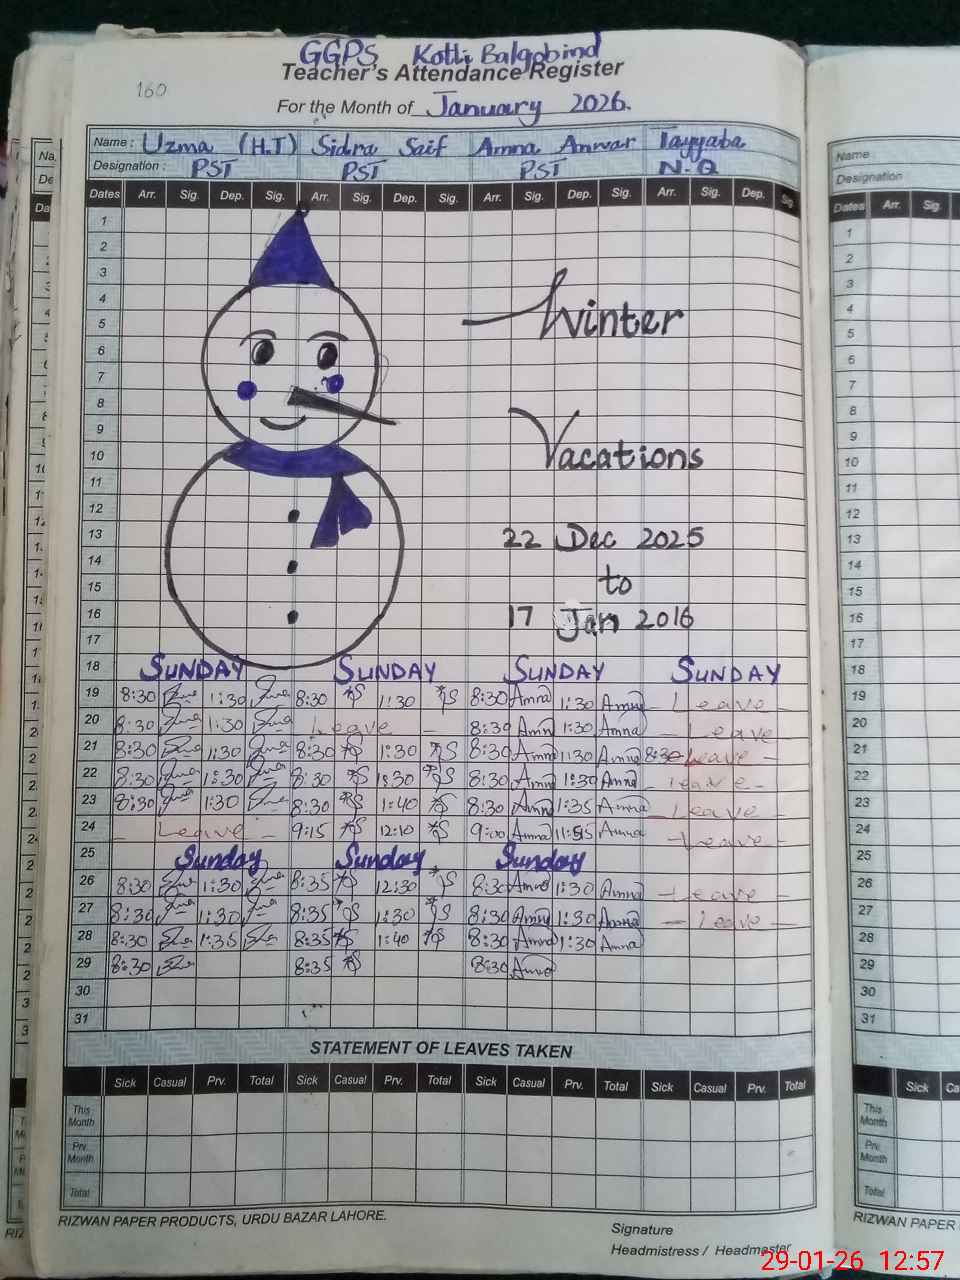 GGPS Kotli Balgobind
Teacher's Attendance Register
160
For the Month of January 2026.
Name : Uzma (H.T) Sidra Saif Amna Anwar Tayyaba
Designation : PST PST PST N.Q
Dates Arr. Sig. Dep. Sig. Arr. Sig. Dep. Sig. Arr. Sig. Dep. Sig. Arr. Sig. Dep. Sig.
1
2
3
4
5
6
7
8
9
10
11
12
13
14
15
16
17
Winter
Vacations
22 Dec 2025
to
17 Jan 2016
18 SUNDAY SUNDAY SUNDAY SUNDAY
19 8:30 1:30 8:30 1:30 8:30 Amna 1:30 Amna Leave
20 8:30 1:30 Leave 8:30 Amna 1:30 Amna Leave
21 8:30 1:30 8:30 1:30 8:30 Amna 1:30 Amna 8:30 Leave
22 8:30 1:30 8:30 1:30 8:30 Amna 1:30 Amna Leave
23 8:30 1:30 8:30 1:40 8:30 Amna 1:35 Amna Leave
24 Leave 9:15 12:10 9:00 Amna Amna Leave
25 Sunday Sunday Sunday
26 8:30 1:30 8:35 12:30 8:30 Amna 1:30 Amna Leave
27 8:30 1:30 8:35 1:30 8:30 Amna 1:30 Amna Leave
28 8:30 1:35 8:35 1:40 8:30 Amna 1:30 Amna
29 8:30 8:35 8:30 Amna
30
31
STATEMENT OF LEAVES TAKEN
Sick Casual Prv. Total Sick Casual Prv. Total Sick Casual Prv. Total Sick Casual Prv. Total
This Month
Prv. Month
Total
RIZWAN PAPER PRODUCTS, URDU BAZAR LAHORE.
Signature
Headmistress / Headmaster
Name
Designation
Dates Arr. Sig.
1
2
3
4
5
6
7
8
9
10
11
12
13
14
15
16
17
18
19
20
21
22
23
24
25
26
27
28
29
30
31
Sick
This Month
Prv. Month
Total
RIZWAN PAPER
29-01-26 12:57